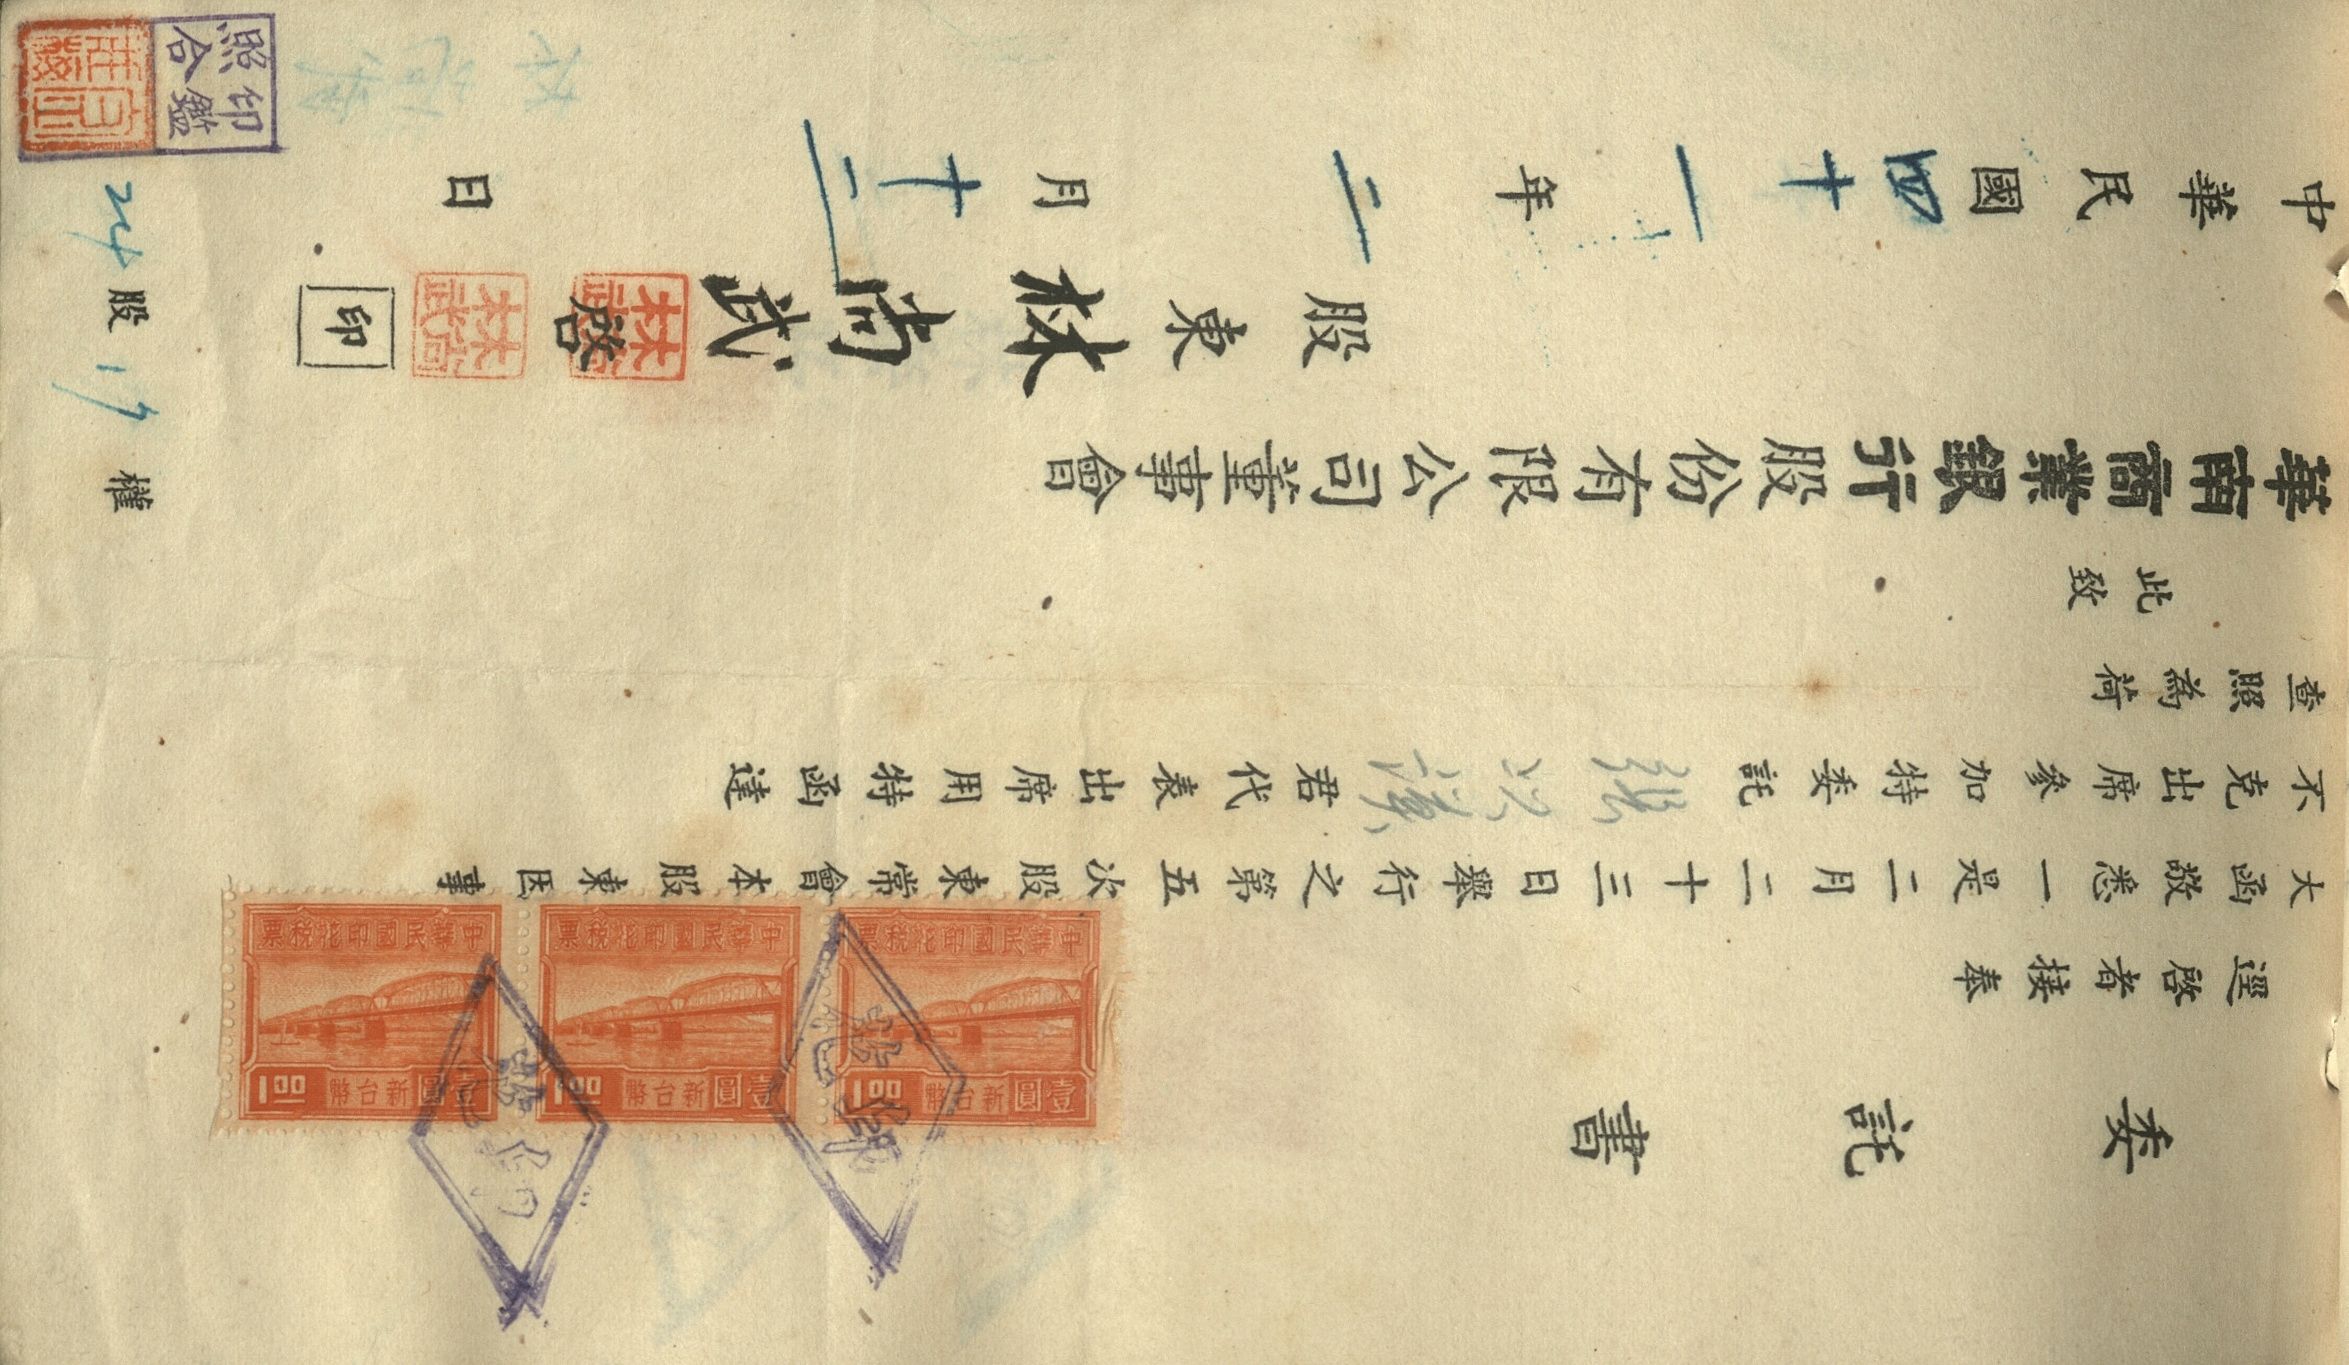 委託書
逕啓者接奉
大函敬悉一是二月二十三日舉行之第五次股東常會本股東因事
不克出席參加特委託
君代表出席用特函達
查照為荷
此致
華南商業銀行股份有限公司董事會
股東林尚武啓
林尚武
林尚武
印
中華民國四十一年二月十二日
股
權
印鑑
照合
中華民國印花稅票
壹圓新台幣
1.00
中華民國印花稅票
壹圓新台幣
1.00
中華民國印花稅票
壹圓新台幣
1.00